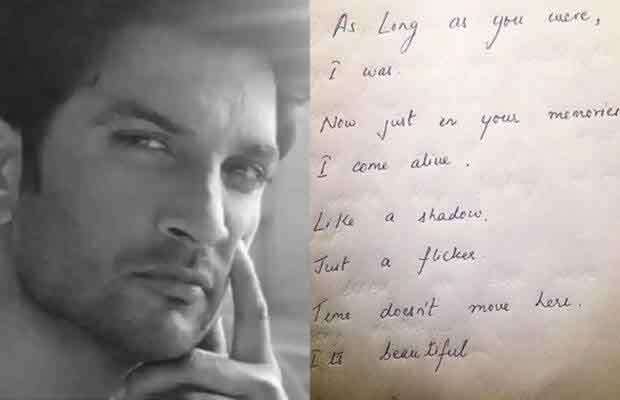 As Long as you were,
I was.
Now just in your memories
I come alive.
Like a shadow.
Just a flicker.
Time doesn't move here.
Its beautiful